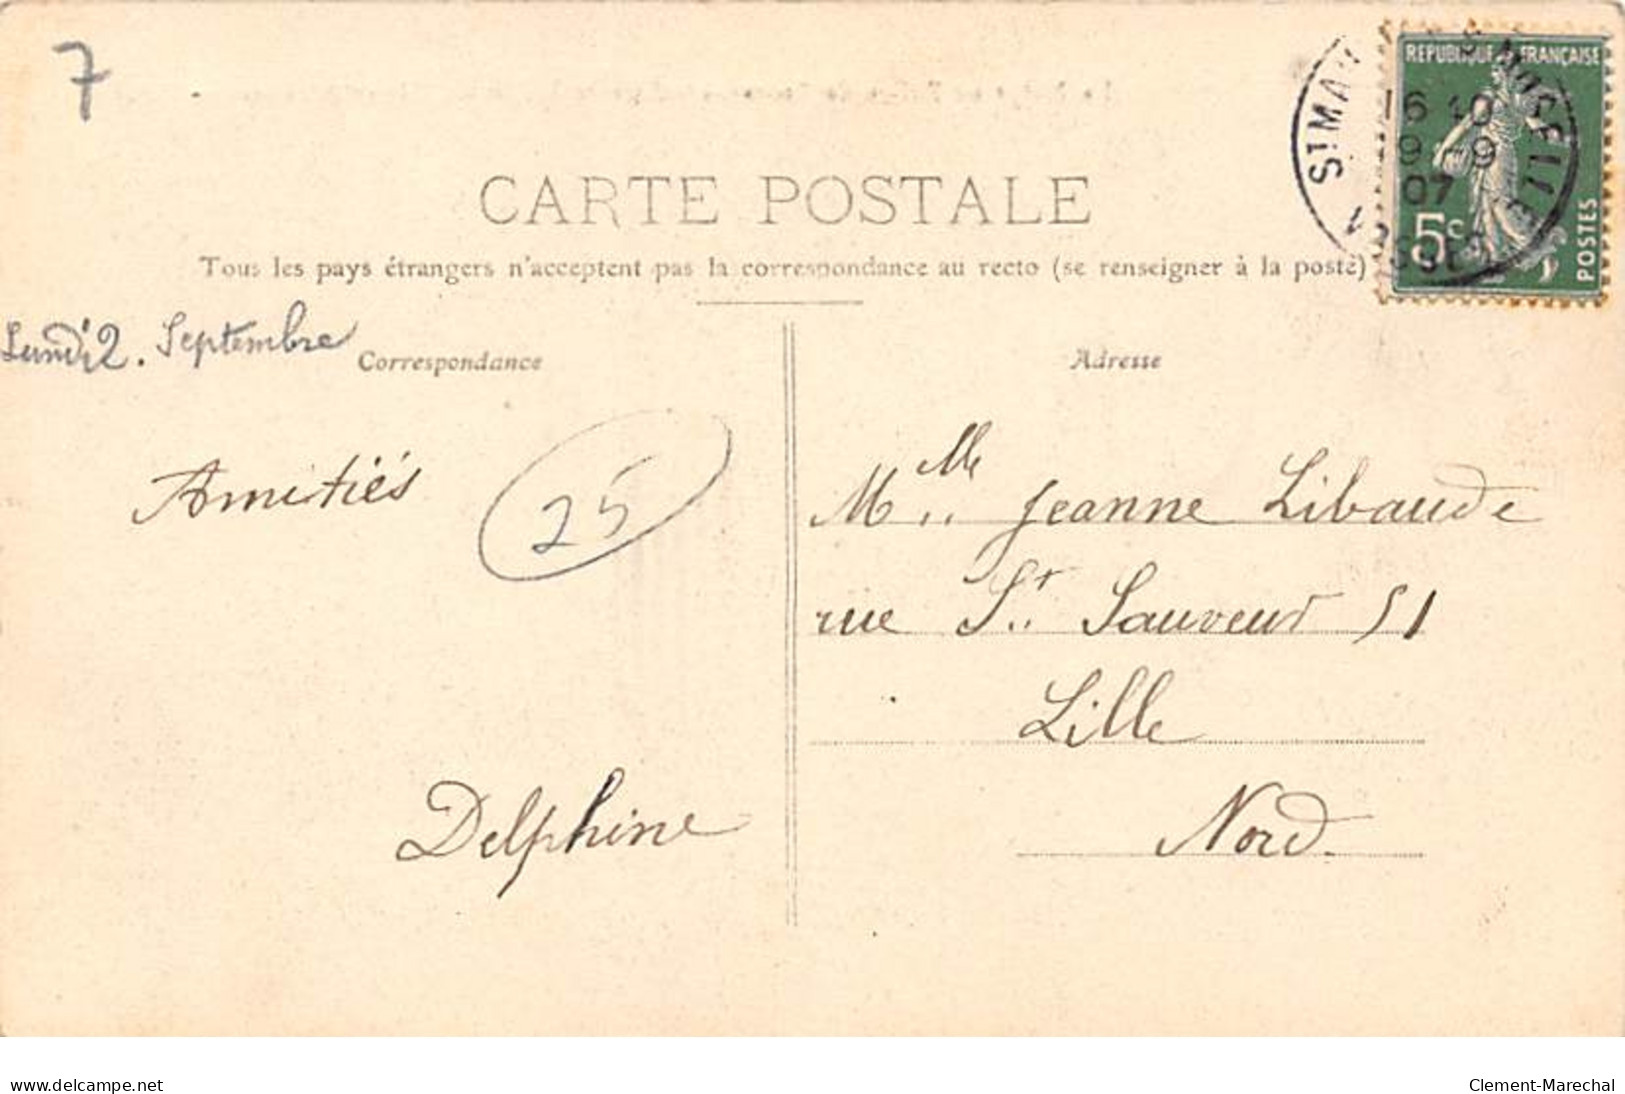 7
REPUBLIQUE FRANÇAISE
16 10
9-9
07
5c
POSTES
CARTE POSTALE
Tous les pays étrangers n'acceptent pas la correspondance au recto (se renseigner à la poste)
Lundi 2. Septembre
Correspondance
Adresse
Amitiés
25
Delphine
Mlle Jeanne Libaude
rue St. Sauveur 51
Lille
Nord.
www.delcampe.net
Clement-Marechal